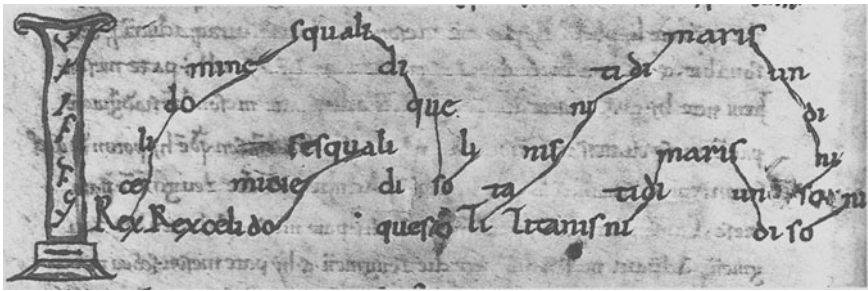 squali maris
mine di tidi un
do que ni di
li sesquali li nis maris ni
ce di so ta tidi un so ni
Rex Rexcelido queso li litanis ni di so